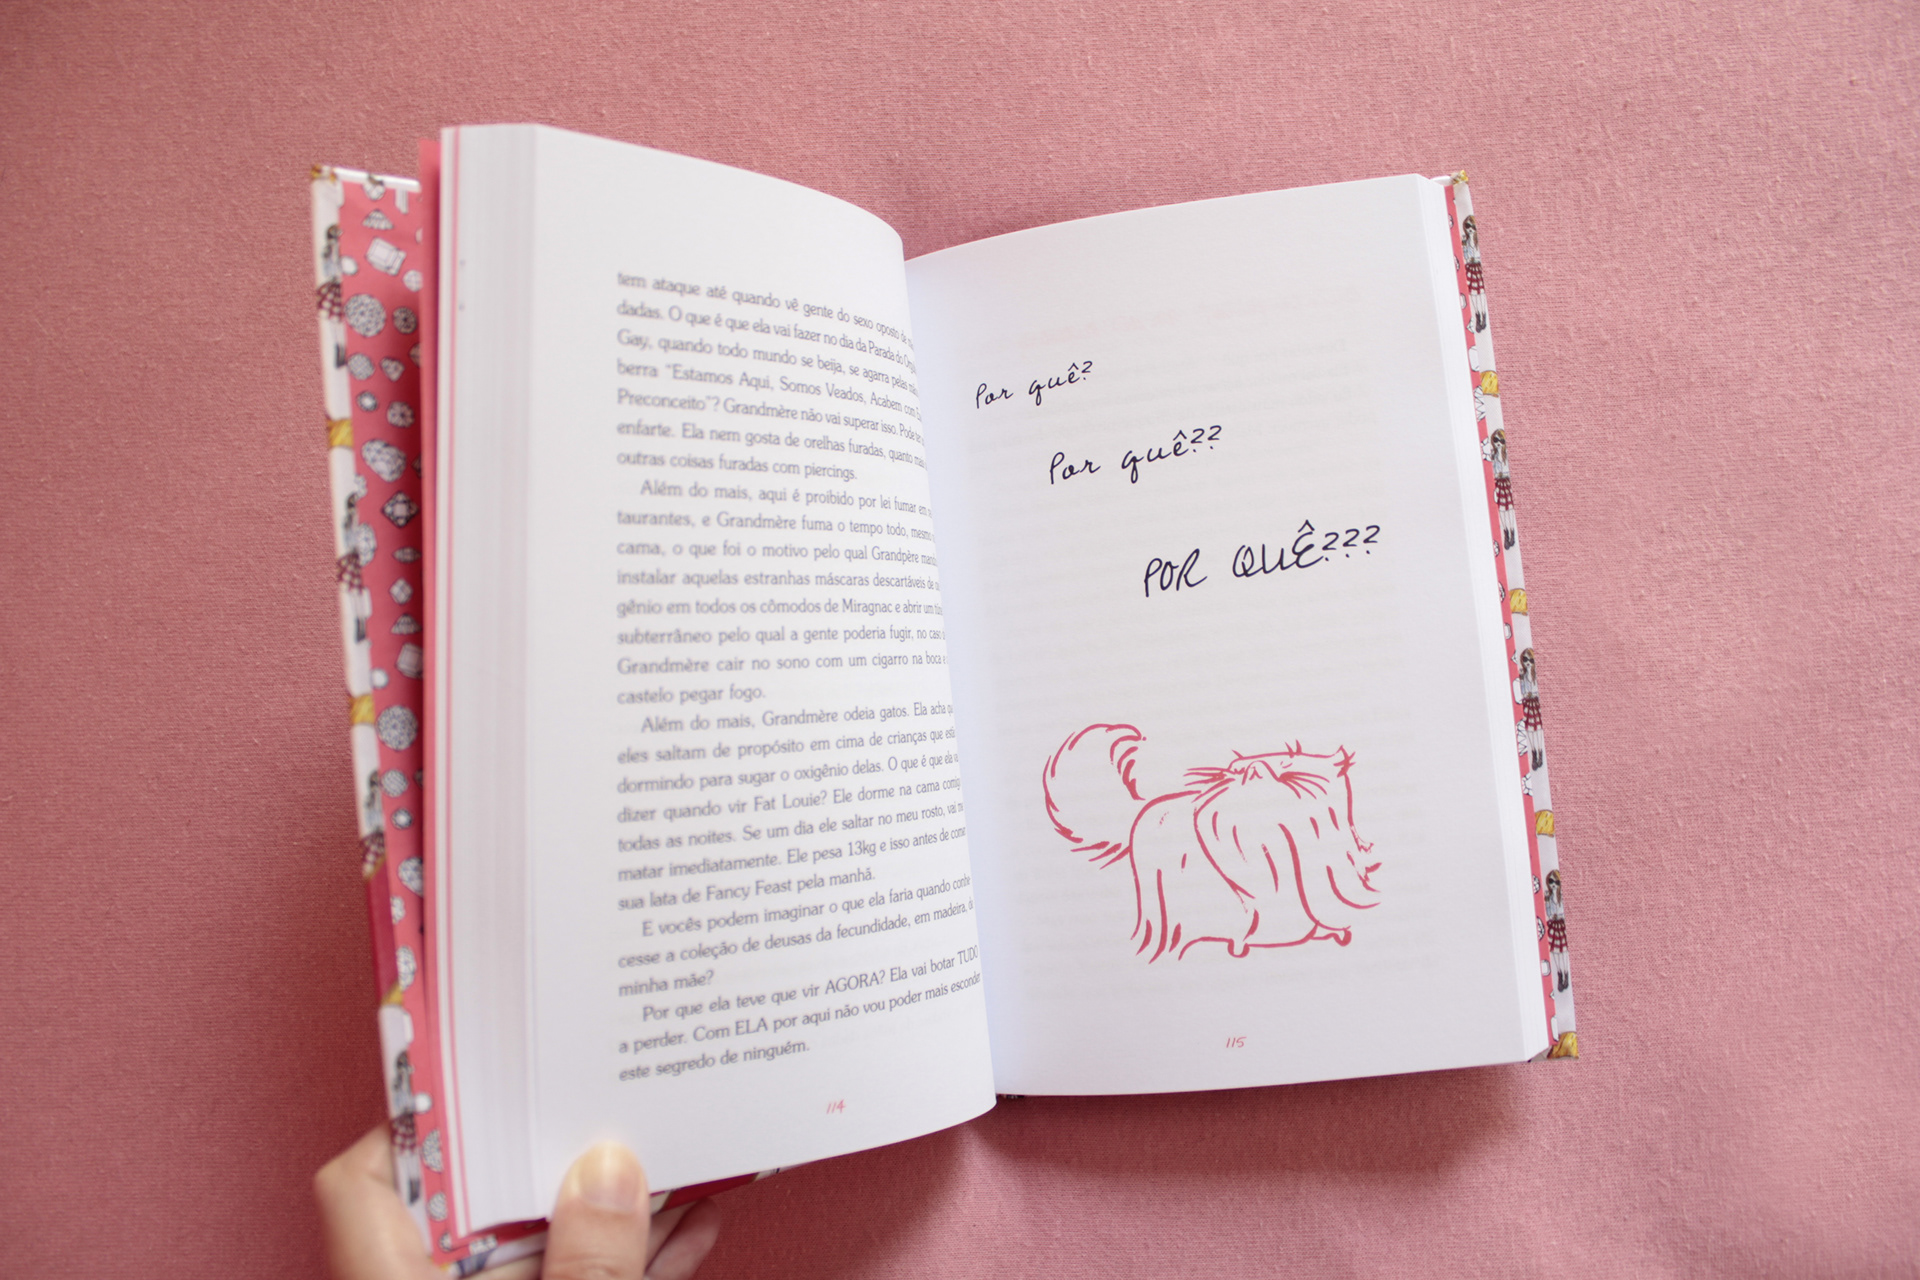 tem ataque até quando vê gente do sexo oposto de
dadas. O que é que ela vai fazer no dia da Parada do
Gay, quando todo mundo se beija, se agarra pelas
berra "Estamos Aqui, Somos Veados, Acabem com
Preconceito"? Grandmère não vai superar isso. Pode
enfarte. Ela nem gosta de orelhas furadas, quanto
outras coisas furadas com piercings.
Além do mais, aqui é proibido por lei fumar em
taurantes, e Grandmère fuma o tempo todo, mesmo
cama, o que foi o motivo pelo qual Grandpère
instalar aquelas estranhas máscaras descartáveis de
gênio em todos os cômodos de Miragnac e abrir um
subterrâneo pelo qual a gente poderia fugir, no caso
Grandmère cair no sono com um cigarro na boca e
castelo pegar fogo.
Além do mais, Grandmère odeia gatos. Ela acha
eles saltam de propósito em cima de crianças que
dormindo para sugar o oxigênio delas. O que é que ela
dizer quando vir Fat Louie? Ele dorme na cama
todas as noites. Se um dia ele saltar no meu rosto, vai
matar imediatamente. Ele pesa 13kg e isso antes de
sua lata de Fancy Feast pela manhã.
E vocês podem imaginar o que ela faria quando
cesse a coleção de deusas da fecundidade, em madeira,
minha mãe?
Por que ela teve que vir AGORA? Ela vai botar TUDO
a perder. Com ELA por aqui não vou poder mais esconder
este segredo de ninguém.
114
Por quê?
Por quê??
POR QUÊ???
115